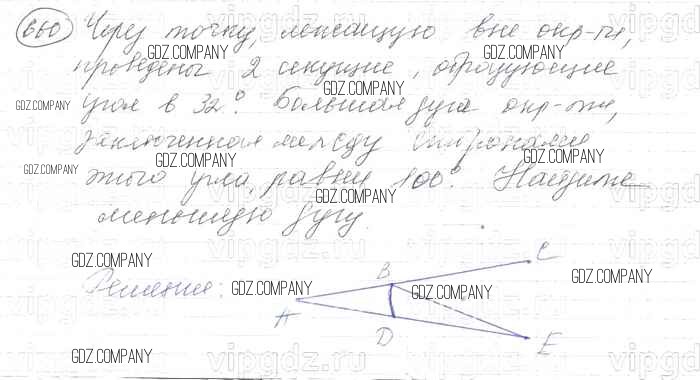 660 Через точку, лежащую вне окр-ти,
проведены 2 секущие, образующие
угол в 32°. Большая дуга окр-ти,
заключенная между сторонами
этого угла, равна 100°. Найдите
меньшую дугу.
Решение:
B
C
A
D
E
GDZ.COMPANY
GDZ.COMPANY
GDZ.COMPANY
GDZ.COMPANY
GDZ.COMPANY
GDZ.COMPANY
GDZ.COMPANY
GDZ.COMPANY
GDZ.COMPANY
GDZ.COMPANY
GDZ.COMPANY
GDZ.COMPANY
GDZ.COMPANY
vipgdz.ru